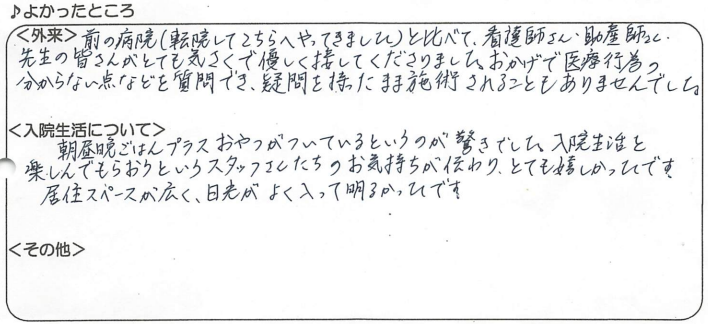 ♪よかったところ
＜外来＞ 前の病院(転院してこちらへやってきました)と比べて、看護師さん・助産師さん・
先生の皆さんがとても気さくで優しく接してくださりました。おかげで医療行為の
分からない点などを質問でき、疑問を持ったまま施術されることもありませんでした。
＜入院生活について＞
朝昼晩ごはんプラスおやつがついているというのが驚きでした。入院生活を
楽しんでもらおうというスタッフさんたちのお気持ちが伝わり、とても嬉しかったです。
居住スペースが広く、日光がよく入って明るかったです
＜その他＞